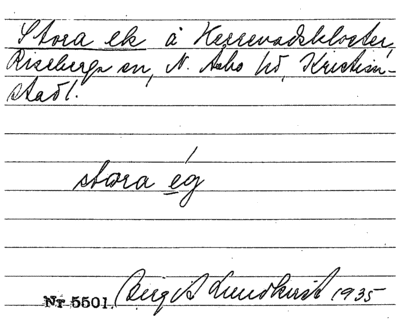 Stora ek å Herrevadskloster,
Riseberga sn, N. Åsbo hd, Kristian-
stads l.
stora ég
Nr 5501. Birgit Lundkvist 1935